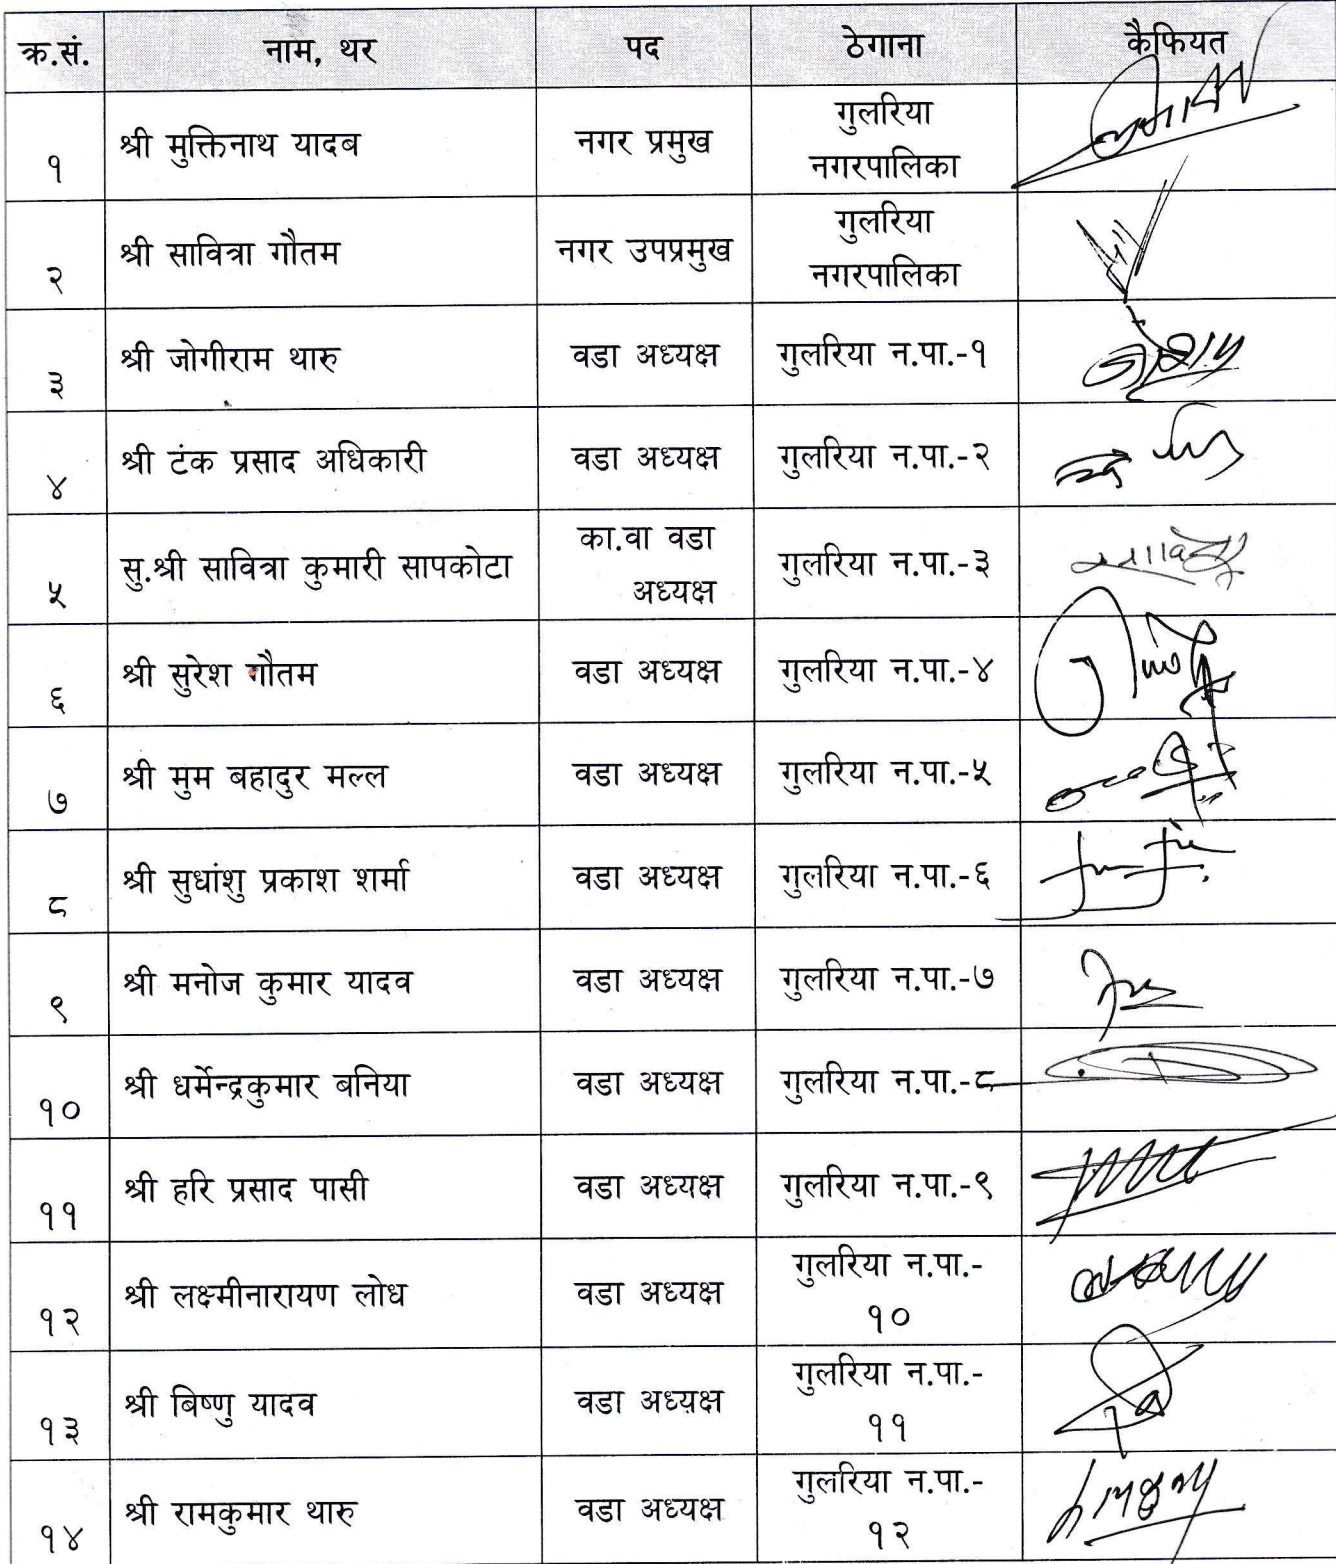 क्र.सं. नाम, थर पद ठेगाना कैफियत
१ श्री मुक्तिनाथ यादब नगर प्रमुख गुलरिया
नगरपालिका
२ श्री सावित्रा गौतम नगर उपप्रमुख गुलरिया
नगरपालिका
३ श्री जोगीराम थारु वडा अध्यक्ष गुलरिया न.पा.-१
४ श्री टंक प्रसाद अधिकारी वडा अध्यक्ष गुलरिया न.पा.-२
५ सु.श्री सावित्रा कुमारी सापकोटा का.वा वडा
अध्यक्ष गुलरिया न.पा.-३
६ श्री सुरेश गौतम वडा अध्यक्ष गुलरिया न.पा.-४
७ श्री मुम बहादुर मल्ल वडा अध्यक्ष गुलरिया न.पा.-५
८ श्री सुधांशु प्रकाश शर्मा वडा अध्यक्ष गुलरिया न.पा.-६
९ श्री मनोज कुमार यादव वडा अध्यक्ष गुलरिया न.पा.-७
१० श्री धर्मेन्द्रकुमार बनिया वडा अध्यक्ष गुलरिया न.पा.-८
११ श्री हरि प्रसाद पासी वडा अध्यक्ष गुलरिया न.पा.-९
१२ श्री लक्ष्मीनारायण लोध वडा अध्यक्ष गुलरिया न.पा.-
१०
१३ श्री बिष्णु यादव वडा अध्यक्ष गुलरिया न.पा.-
११
१४ श्री रामकुमार थारु वडा अध्यक्ष गुलरिया न.पा.-
१२